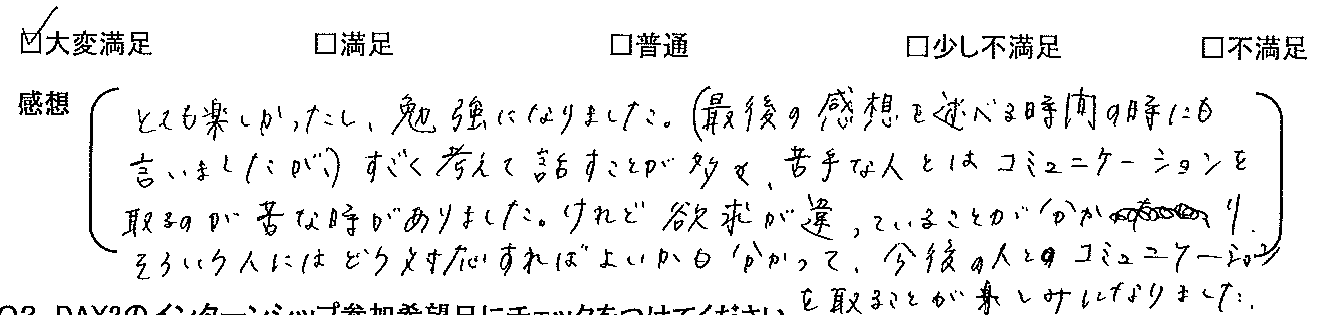 ☑大変満足 □満足 □普通 □少し不満足 □不満足
感想
とても楽しかったし、勉強になりました。(最後の感想を述べる時間の時にも
言いましたが、)すごく考えて話すことが多く、苦手な人とはコミュニケーションを
取るのが苦な時がありました。けれど欲求が違っていることが分かり、
そういう人にはどう対応すればよいかも分かって、今後の人とのコミュニケーション
を取ることが楽しみになりました。
Q2 DAY2のインターンシップ参加希望日にチェックをつけてください